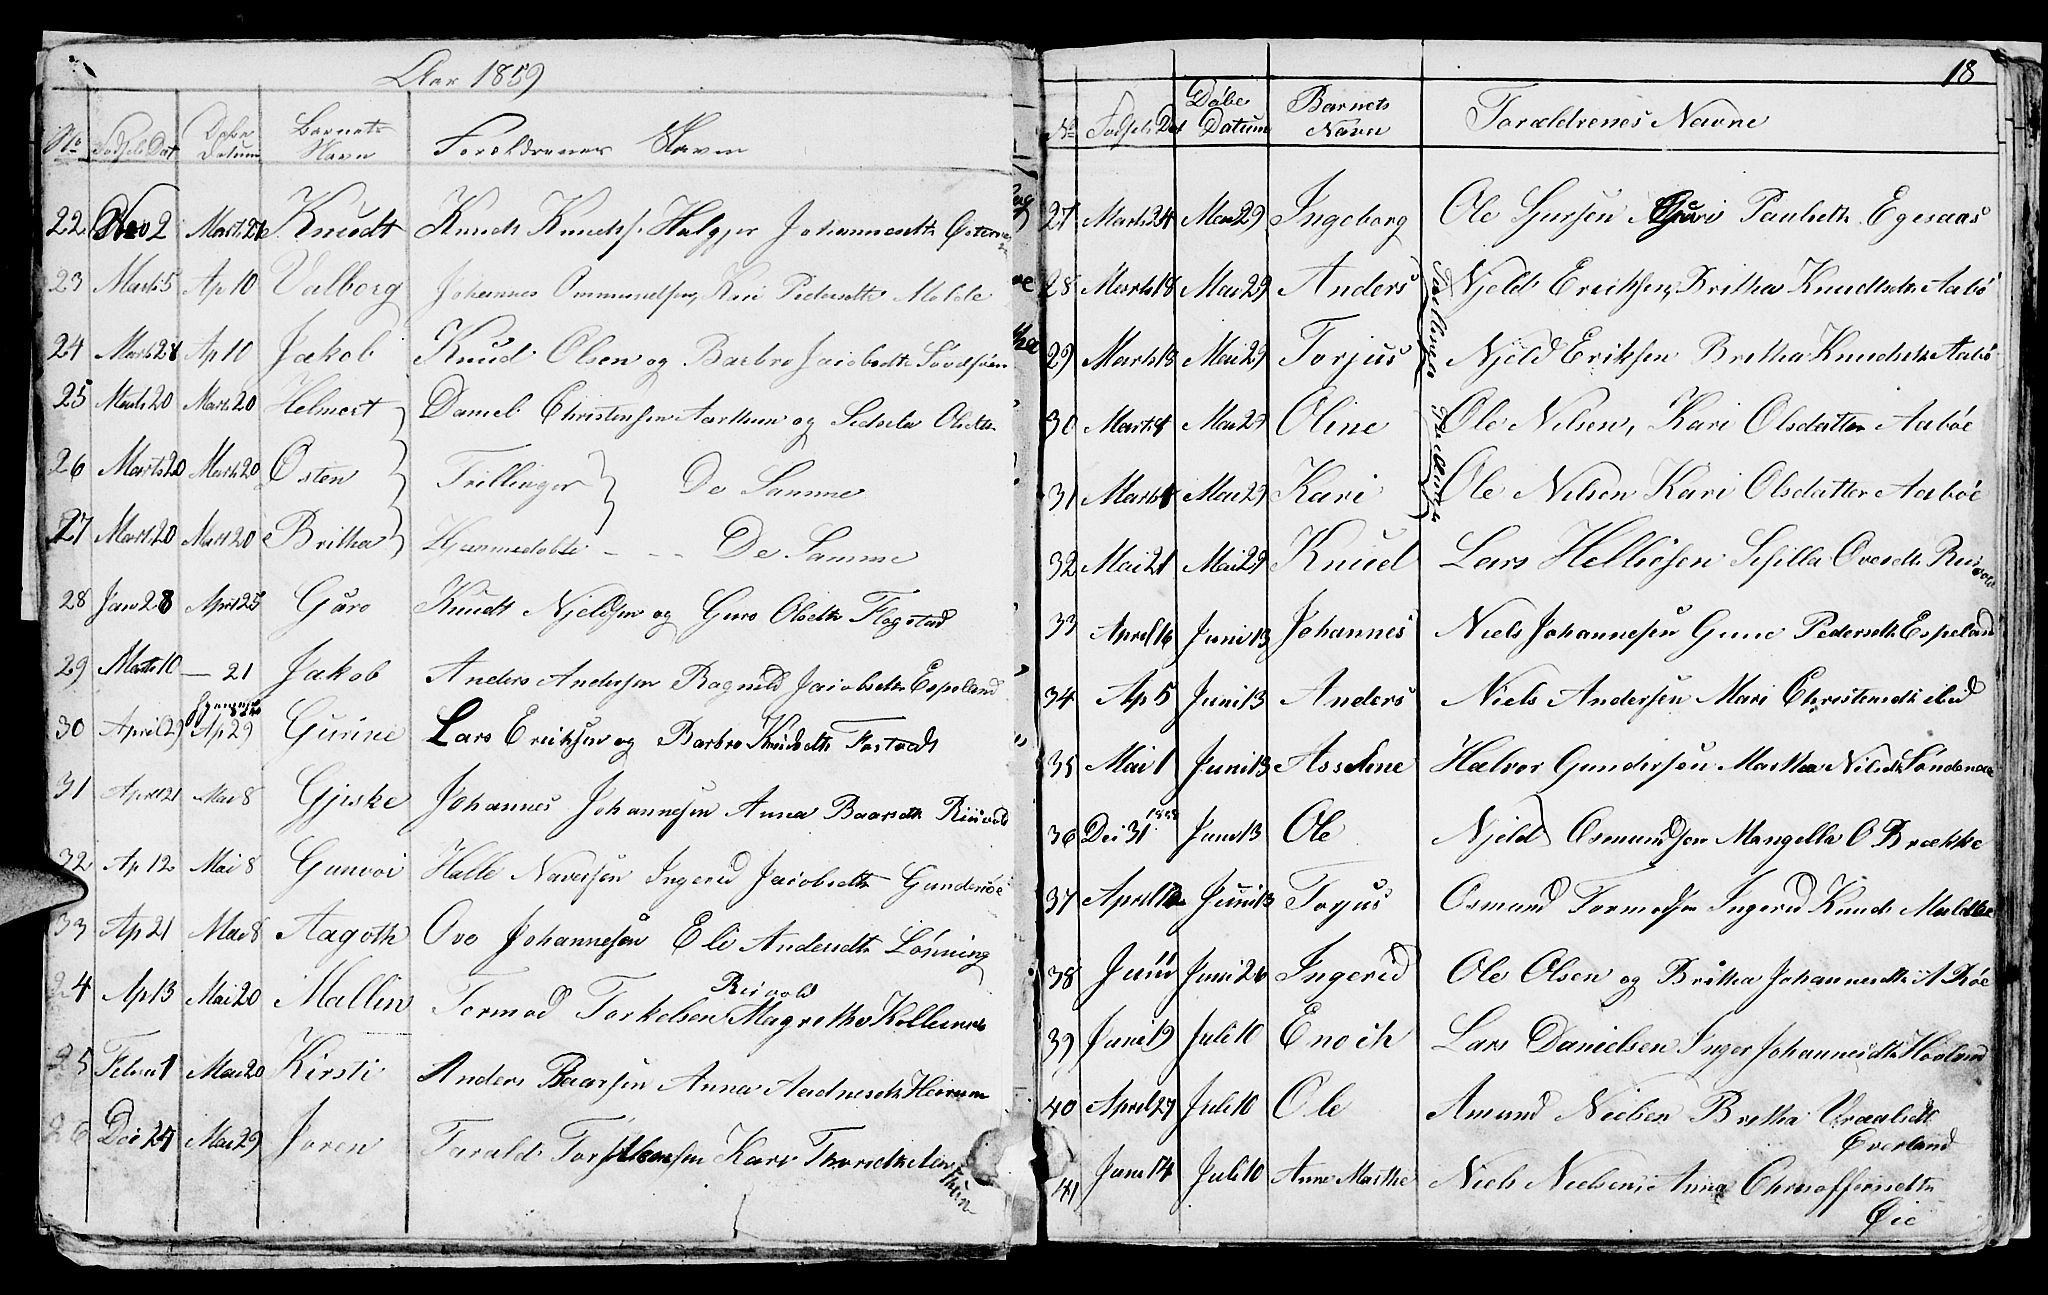 Aar 1859
No Fødsels Dat Døbe Datum Barnets Navn Forældrenes Navn
22 Nov 2 Marts 27 Knudt Knudt Knuds. Helgjer Johannesdtr
23 Marts 5 Ap 10 Valborg Johannes Ommundsen, Kari Pedersdtr Molde
24 Marts 21 Ap 10 Jakob Knud Olsen og Barbro Jacobsdtr
25 Marts 20 Marts 20 Helmert Daniel Christensen Aarthun og Sidsela Olsdtr
26 Marts 20 Marts 20 Østen Trillinger De Samme
27 Marts 20 Marts 20 Britha Hjemmedøbte - - - De Samme
28 Jan 28 April 25 Guro Knudt Njeldsen og Guro Olsdtr Flogstad
29 Marts 10 — 21 Jakob Anders Andersen Ragnild Jacobsdtr Espeland
30 April 29 Ap 29 Gurine Lars Eriksen og Barbro Knudsdtr
31 April 21 Mai 8 Gjøske Johannes Johannesen Anna Baarsdtr Riisvold
32 Ap 12 Mai 8 Gunvor Halle Ingerid Jacobsdtr
33 Ap 21 Mai 8 Aagoth Ove Johannesen Eli Andersdtr Lønning
24 Ap 13 Mai 20 Mallin Tormod Torkelsen Magrethe
25 Februar 1 Mai 20 Kirsti Anders Baarsen Anna Aadnesdtr
26 Dec 27 Mai 29 Joren Tarald Kari
18
No Fødsels Dat Døbe Datum Barnets Navn Forældrenes Navne
27 Marts 24 Mai 29 Ingeborg Ole Guri Paulsdtr Egesaas
28 Marts 18 Mai 29 Anders Njeld Eriksen, Britha Knudtsdtr Aabø
29 Marts 18 Mai 29 Torjus Njeld Eriksen Britha Knudsdtr Aabø
30 Marts 4 Mai 29 Oline Ole Nilsen, Kari Olsdatter Aabøe
31 Marts 4 Mai 29 Kari Ole Nilsen Kari Olsdatter Aabøe
32 Mai 21 Mai 29 Knud Lars Helliesen Sisilla Ovesdtr
33 April 16 Juni 13 Johannes Niels Johannesen Gune Pedersdtr Espeland
34 Ap 5 Juni 13 Anders Niels Andersen Mari Christensdtr ibid
35 Mai 1 Juni 13 Asseline Halvor Gundersen Martha Nilsdtr
36 Dec 31 1858 Juni 13 Ole Njeld Osmundsen Mangella O Brække
37 April 12 Juni 13 Torjus Osmund Tormodsen Ingerid Knuds
38 Juni Juni 26 Ingerid Ole Olsen og Britha Johannesdtr
39 Juni 19 Juli 10 Enoch Lars Danielsen Inger Johannesdtr
40 April 27 Juli 10 Ole Amund Nielsen Britha
Øverland
41 Juni 14 Juli 10 Anne Marthe Niels Nielsen Anna Christoffersdtr
Øie